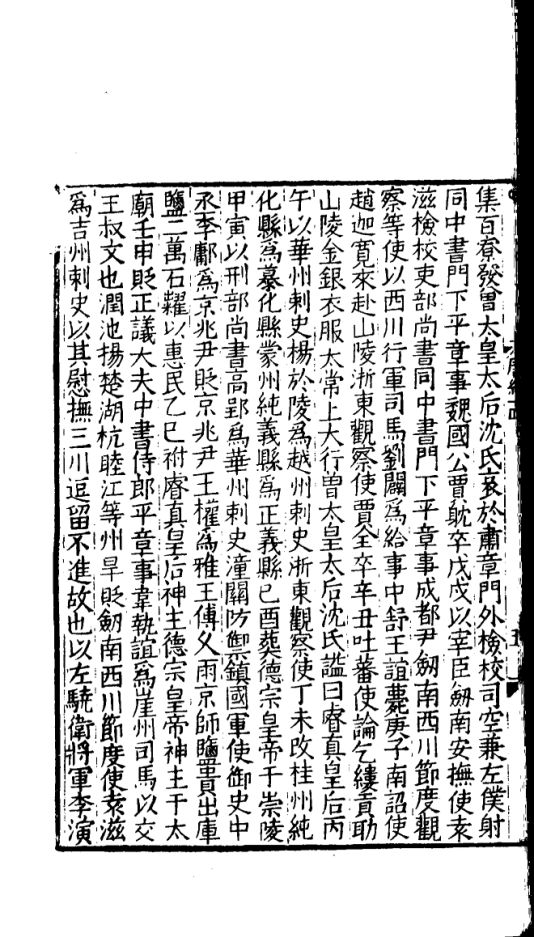 集百寮發曾太皇太后沈氏哀於肅章門外檢校司空兼左僕射
同中書門下平章事魏國公賈躭卒戊戌以宰臣劒南安撫使袁
滋檢校吏部尚書同中書門下平章事成都尹劒南西川節度觀
察等使以西川行軍司馬劉闢爲給事中舒王誼薨庚子南詔使
趙迦寛來赴山陵浙東觀察使賈全卒辛丑吐蕃使論乞縷貢助
山陵金銀衣服太常上大行曾太皇太后沈氏謚曰睿真皇后丙
午以華州刺史楊於陵爲越州刺史浙東觀察使丁未改桂州純
化縣爲慕化縣蒙州純義縣爲正義縣己酉葬德宗皇帝于崇陵
甲寅以刑部尚書高郢爲華州刺史潼關防禦鎮國軍使御史中
丞李鄘爲京兆尹貶京兆尹王權爲雅王傅久雨京師鹽貴出庫
鹽二萬石糶以惠民乙巳祔睿真皇后神主德宗皇帝神主于太
廟壬申貶正議大夫中書侍郎平章事韋執誼爲崖州司馬以交
王叔文也潤池揚楚湖杭睦江等州旱貶劒南西川節度使袁滋
爲吉州刺史以其慰撫三川逗留不進故也以左驍衛將軍李演